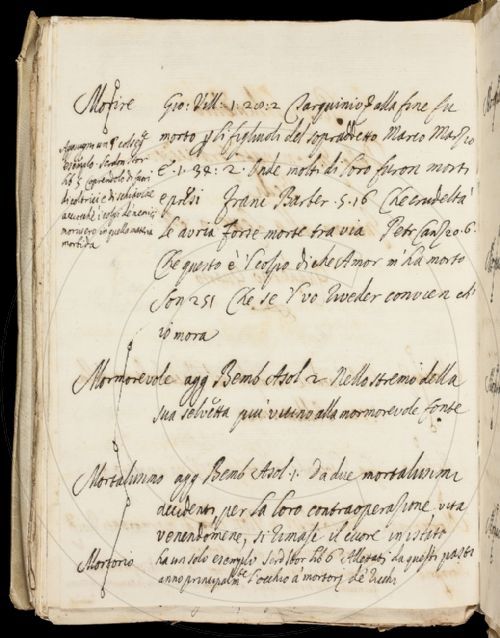 Morire Gio: Vill: 1: 28: 2 Tarquinio alla fine fu
morto gli figliuoli del sopradetto Marco Marzo
E. 1. 38: 2. Unde molti di loro furon morti
e presi Franc Barber. 5. 16 Che crudeltà
le avria forse morte tra via Petr Canz 20. 6.
Che questo è 'l colpo di che Amor m' ha morto
Son 251 Che se 'l vo riveder convien ch'
io mora
esempio
lib 5
accioche i colpi de nemici
morissero in quella materia
morbida
Mormorevole agg Bemb Asol 2 Nello stremo della
sua selvetta più vicino alla mormorevole fonte
Mortalissimo agg Bemb Asol. 1. Da due mortalissimi
accidenti per la loro contraoperazione vita
venendomene, si rimase il cuore in istato
Mortorio ha un solo esempio lib 6 Allettati da questi pasti
anno principalmte l'occhio à mortorj de' Ricchi